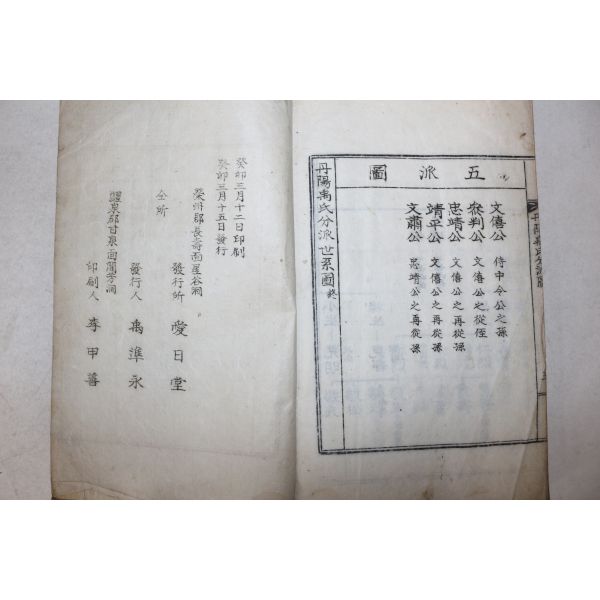 五派圖
文僖公 侍中令公之孫
叅判公 文僖公之從侄
忠靖公 文僖公之再從孫
靖平公 文僖公之再從孫
文肅公 忠靖公之再從孫
丹陽禹氏分派世系圖終
癸卯三月十二日印刷
癸卯三月十五日發行
榮州郡長壽面星谷洞
發行所 愛日堂
仝所
發行人 禹準永
醴泉郡甘泉面
印刷人 李甲善